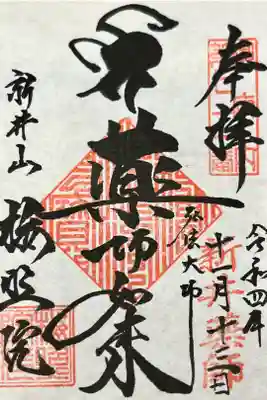 奉拝
令和四年
十一月十二日
新井薬師
弘法大師
薬師如来
新井山
梅照院